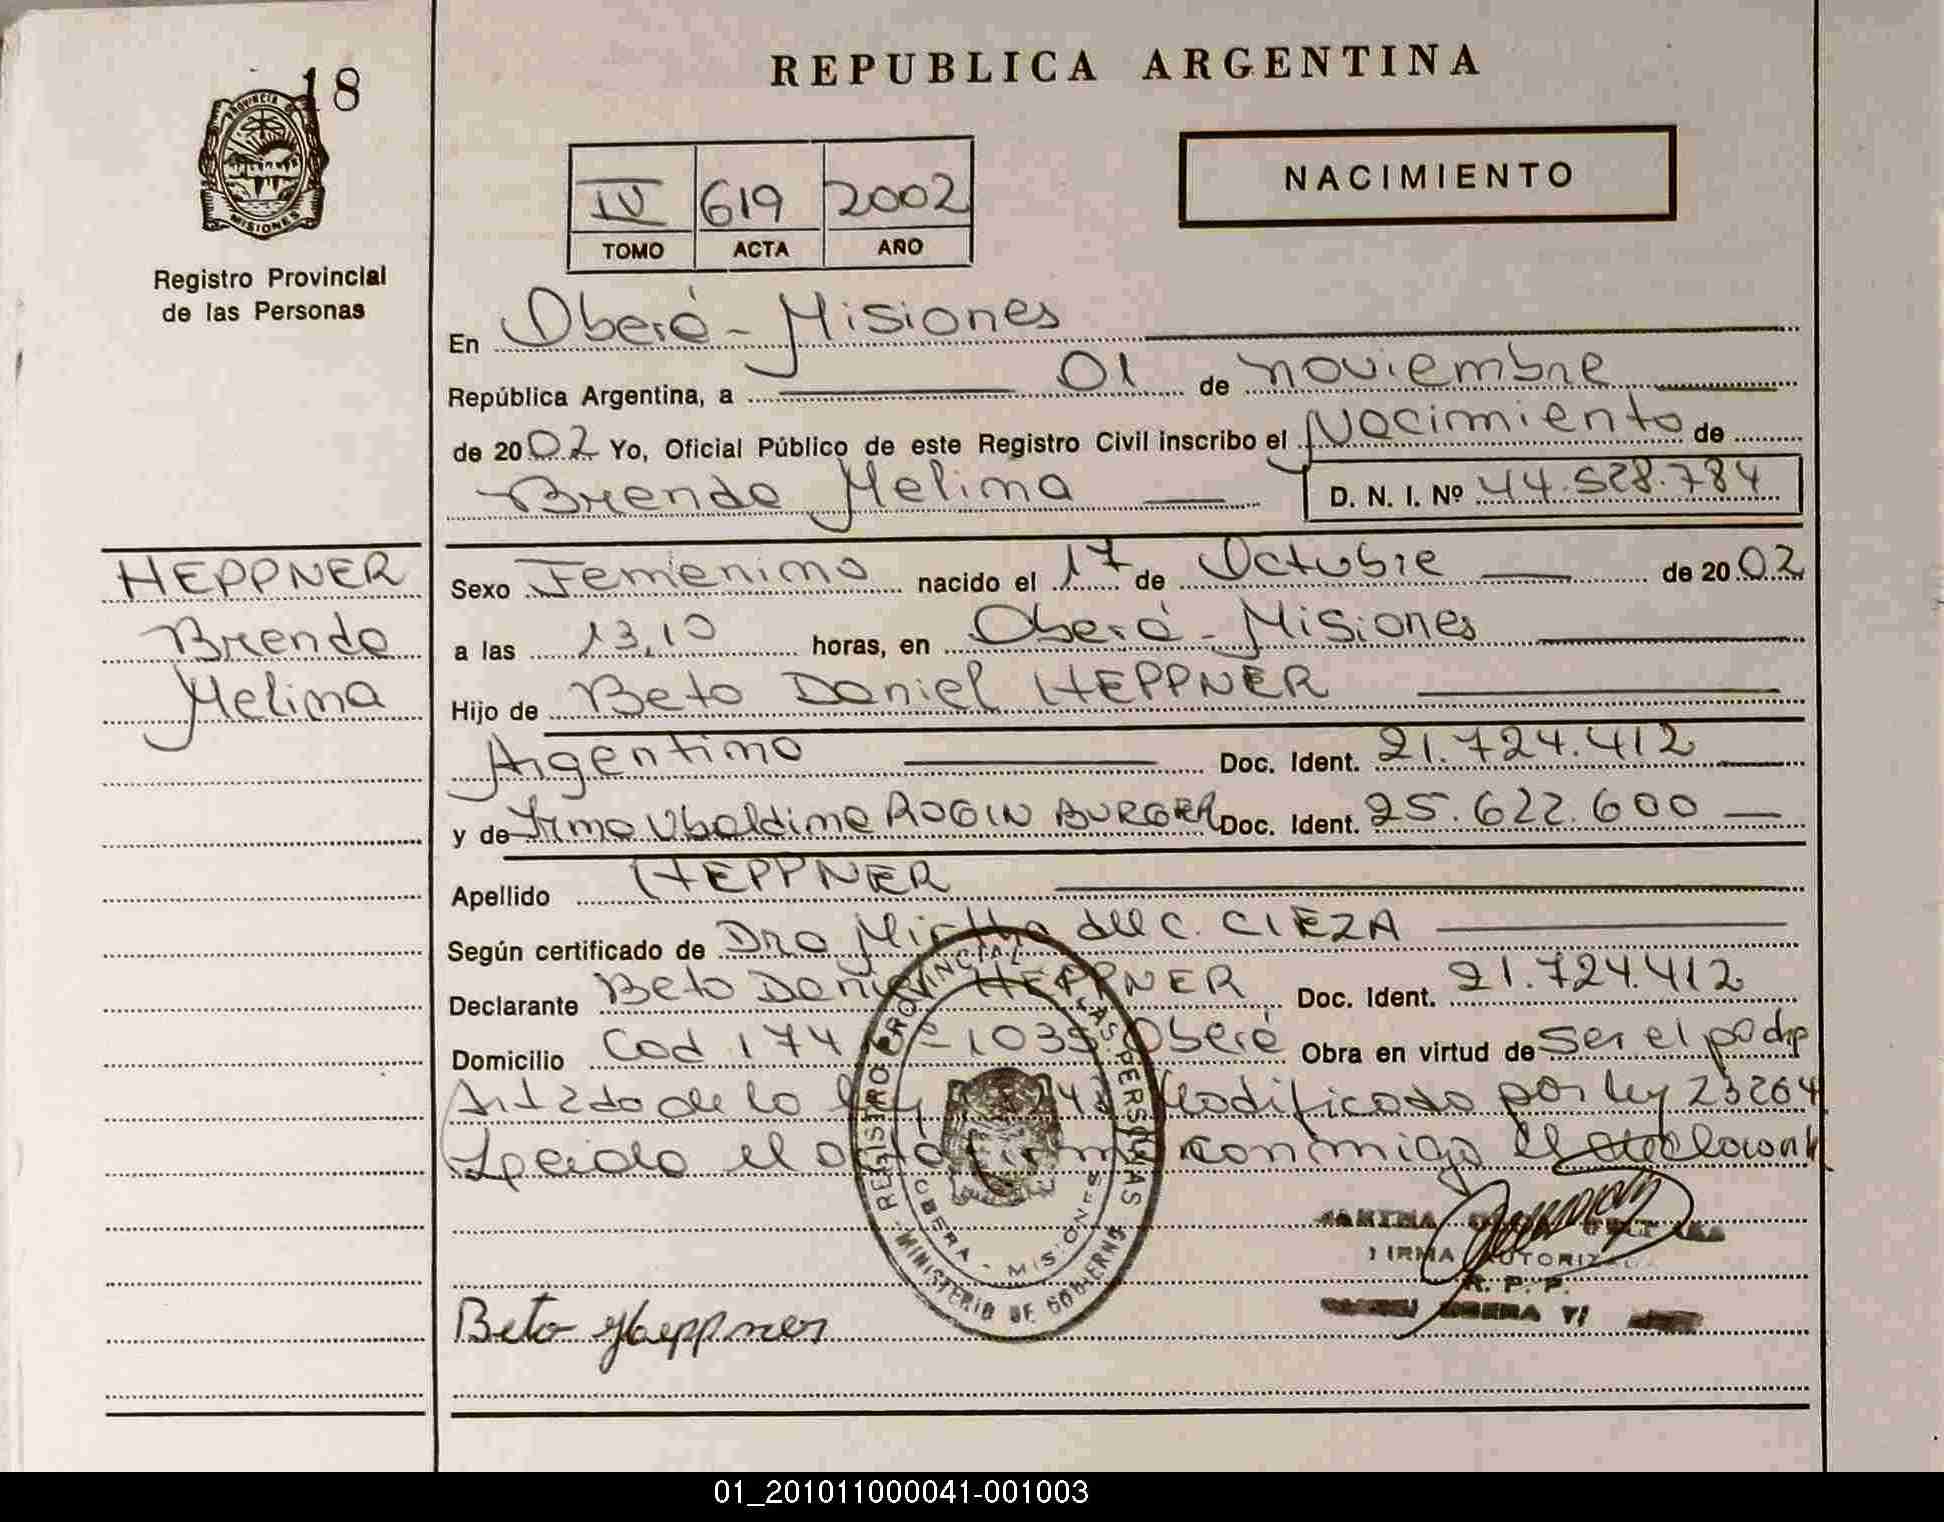 18
PROVINCIA DE
MISIONES
Registro Provincial
de las Personas
REPUBLICA ARGENTINA
IV 619 2002
TOMO ACTA AÑO
NACIMIENTO
En Oberá - Misiones
República Argentina, a 01 de noviembre
de 2002 Yo, Oficial Público de este Registro Civil inscribo el Nacimiento de
Brenda Melina D. N. I. Nº 44.528.784
HEPPNER
Brenda
Melina
Sexo Femenino nacido el 17 de Octubre de 2002
a las 13,10 horas, en Oberá - Misiones
Hijo de Beto Daniel HEPPNER
Argentino Doc. Ident. 21.724.412
y de Irma Ubaldina ROGIN BURGER Doc. Ident. 25.622.600
Apellido HEPPNER
Según certificado de Dra Mirtha del C. CIEZA
Declarante Beto Daniel HEPPNER Doc. Ident. 21.724.412
Domicilio Cod 174 1035 Oberá Obra en virtud de ser el padre
de la Modificado por ley 23264
Leida el acta firma conmigo el declarante
REGISTRO PROVINCIAL DE LAS PERSONAS
OBERA - MISIONES
MINISTERIO DE GOBIERNO
FIRMA AUTORIZADA
R. P. P.
OBERA
Beto Heppner
01_201011000041-001003